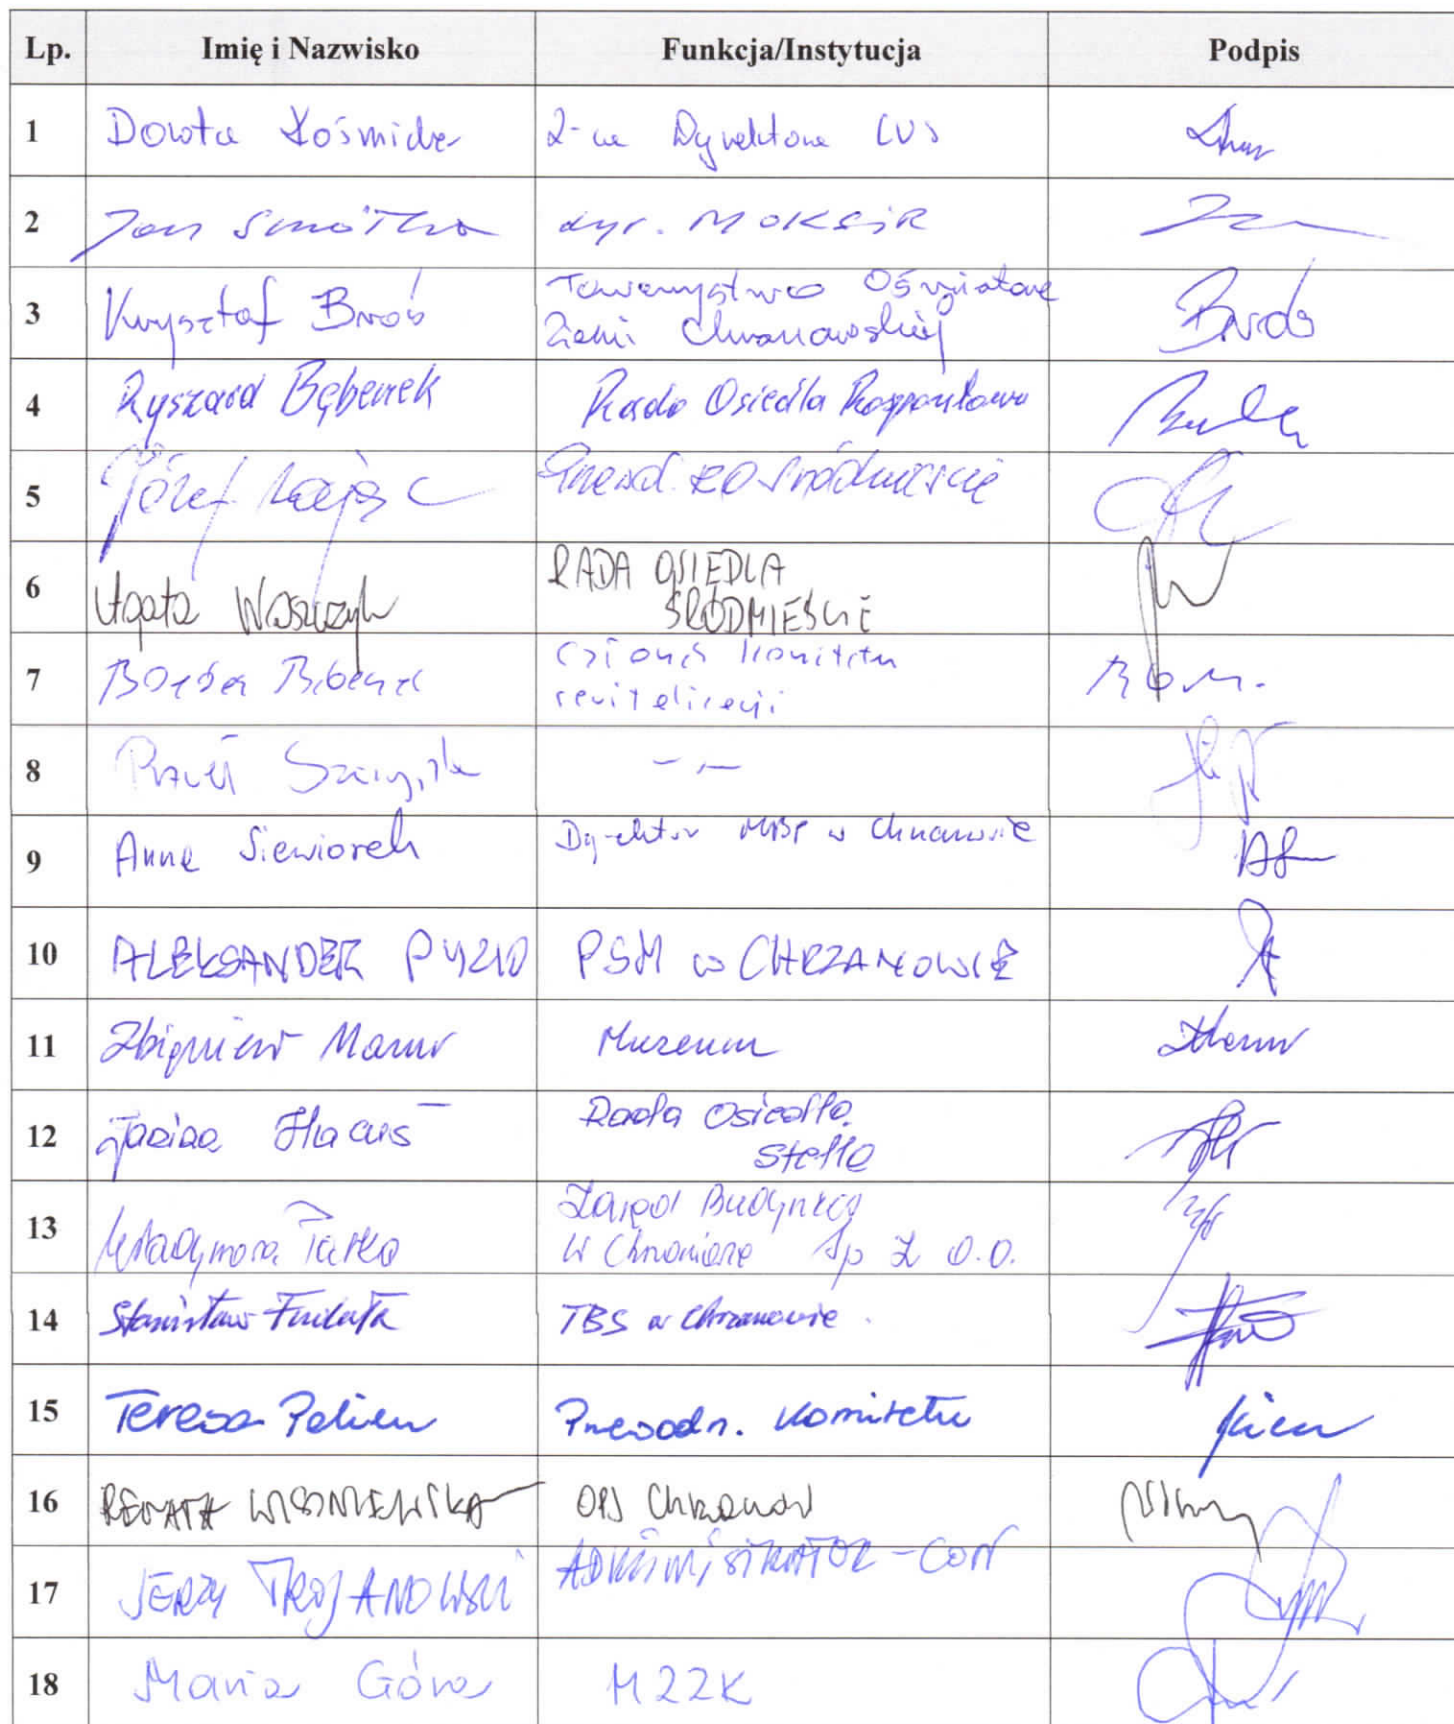 Lp. Imię i Nazwisko Funkcja/Instytucja Podpis
1 Dorota Kośmider Z-ca Dyrektora CUS
2 Jan Smółka dyr. MOKSiR
3 Krzysztof Broś Towarzystwo Oświatowe
Ziemi Chrzanowskiej Broś
4 Ryszard Bębenek Rada Osiedla Rospontowa
5 Józef Zając Przewod. RO Śródmieście
6 Agata RADA OSIEDLA
ŚRÓDMIEŚCIE
7 Bębenek Członek komitetu
rewitalizacji
8 Paweł
9 Anna Siewiorek Dyrektor MBP w Chrzanowie
10 ALEKSANDER PYZIO PSM w CHRZANOWIE
11 Zbigniew Mazur Muzeum
12 Rada Osiedla
Stella
13 Zarząd Budynków
w Chrzanowie Sp Z O.O.
14 Stanisław TBS w Chrzanowie.
15 Teresa Przewodn. Komitetu
16 RENATA WIŚNIEWSKA OPS Chrzanów
17 JERZY TROJANOWSKI ADMINISTRATOR - COM
18 Maria Góra MZZK